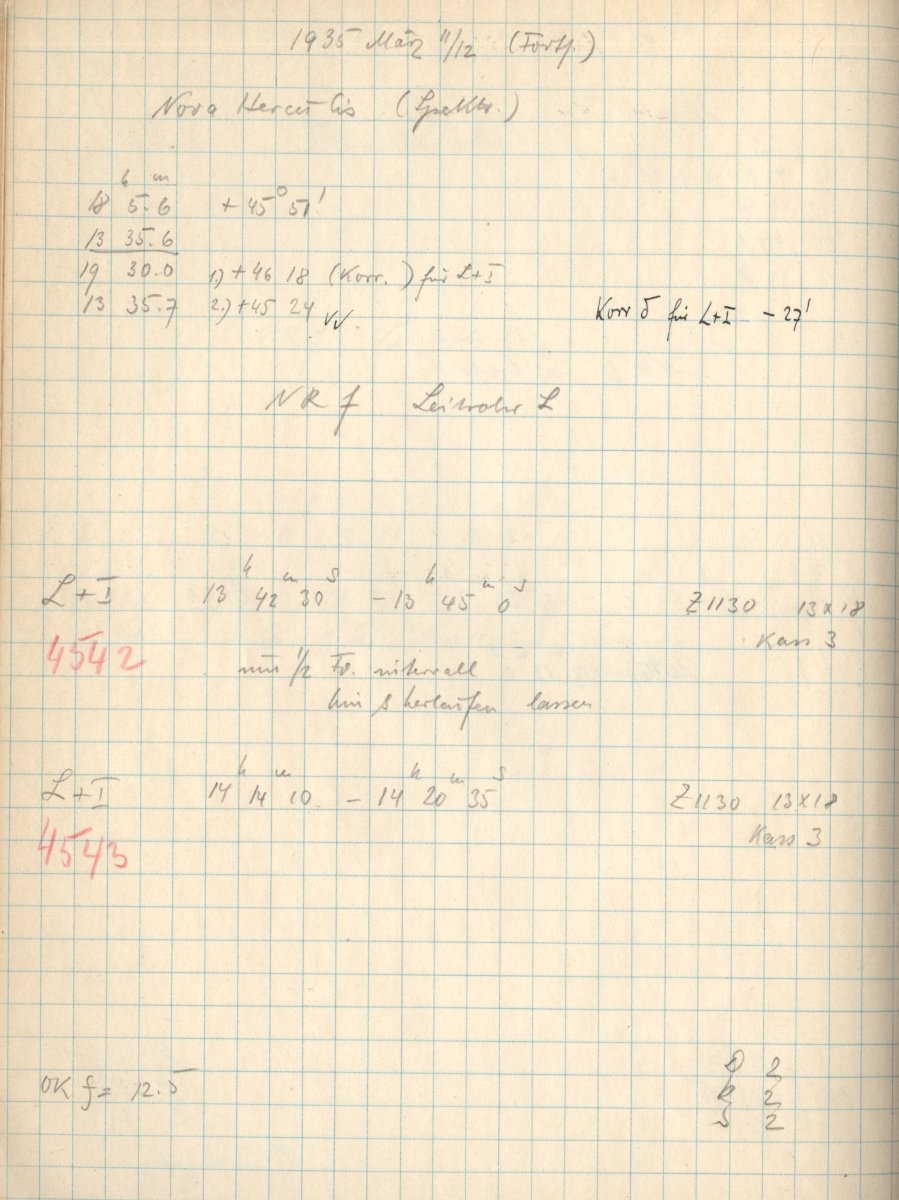 1935 März 11/12 (Forts.)
Nova Herculis (Spektr.)
h m
18 5.6 + 45° 51'
13 35.6
19 30.0 1.) +46 18 (Korr. ) für L+I
13 35.7 2.) +45 24 √√
Korr δ für L+I - 27'
NR f Leitrohr L
L+I 13h 42m 30s - 13h 45m 0s Z1130 13x18
Kass 3
4542
nur 1/2 intervall
hin &
lassen
L+I 14h 14m 10 - 14h 20m 35s Z1130 13x18
Kass 3
4543
OK f= 12.5
D 2
R 2
S 2